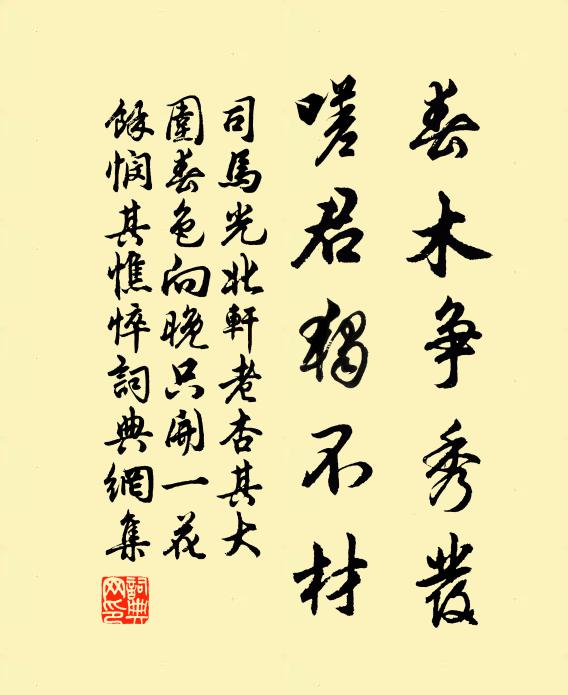 春木争秀發
嗟君獨不材
司馬光北軒老杏其大
圍春色向晚只開一花
餘憫其憔悴詞典網集
詞典
网印